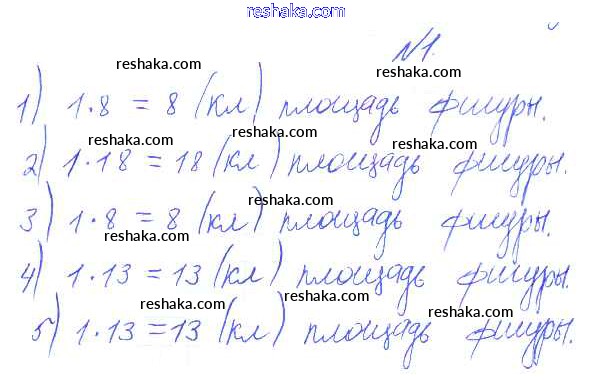 reshaka.com
№1.
reshaka.com reshaka.com
1) 1·8 = 8 (кл) площадь фигуры.
reshaka.com reshaka.com
2) 1·18 = 18 (кл) площадь фигуры.
reshaka.com reshaka.com
3) 1·8 = 8 (кл) площадь фигуры.
reshaka.com reshaka.com
4) 1·13 = 13 (кл) площадь фигуры.
reshaka.com reshaka.com
5) 1·13 = 13 (кл) площадь фигуры.
reshaka.com